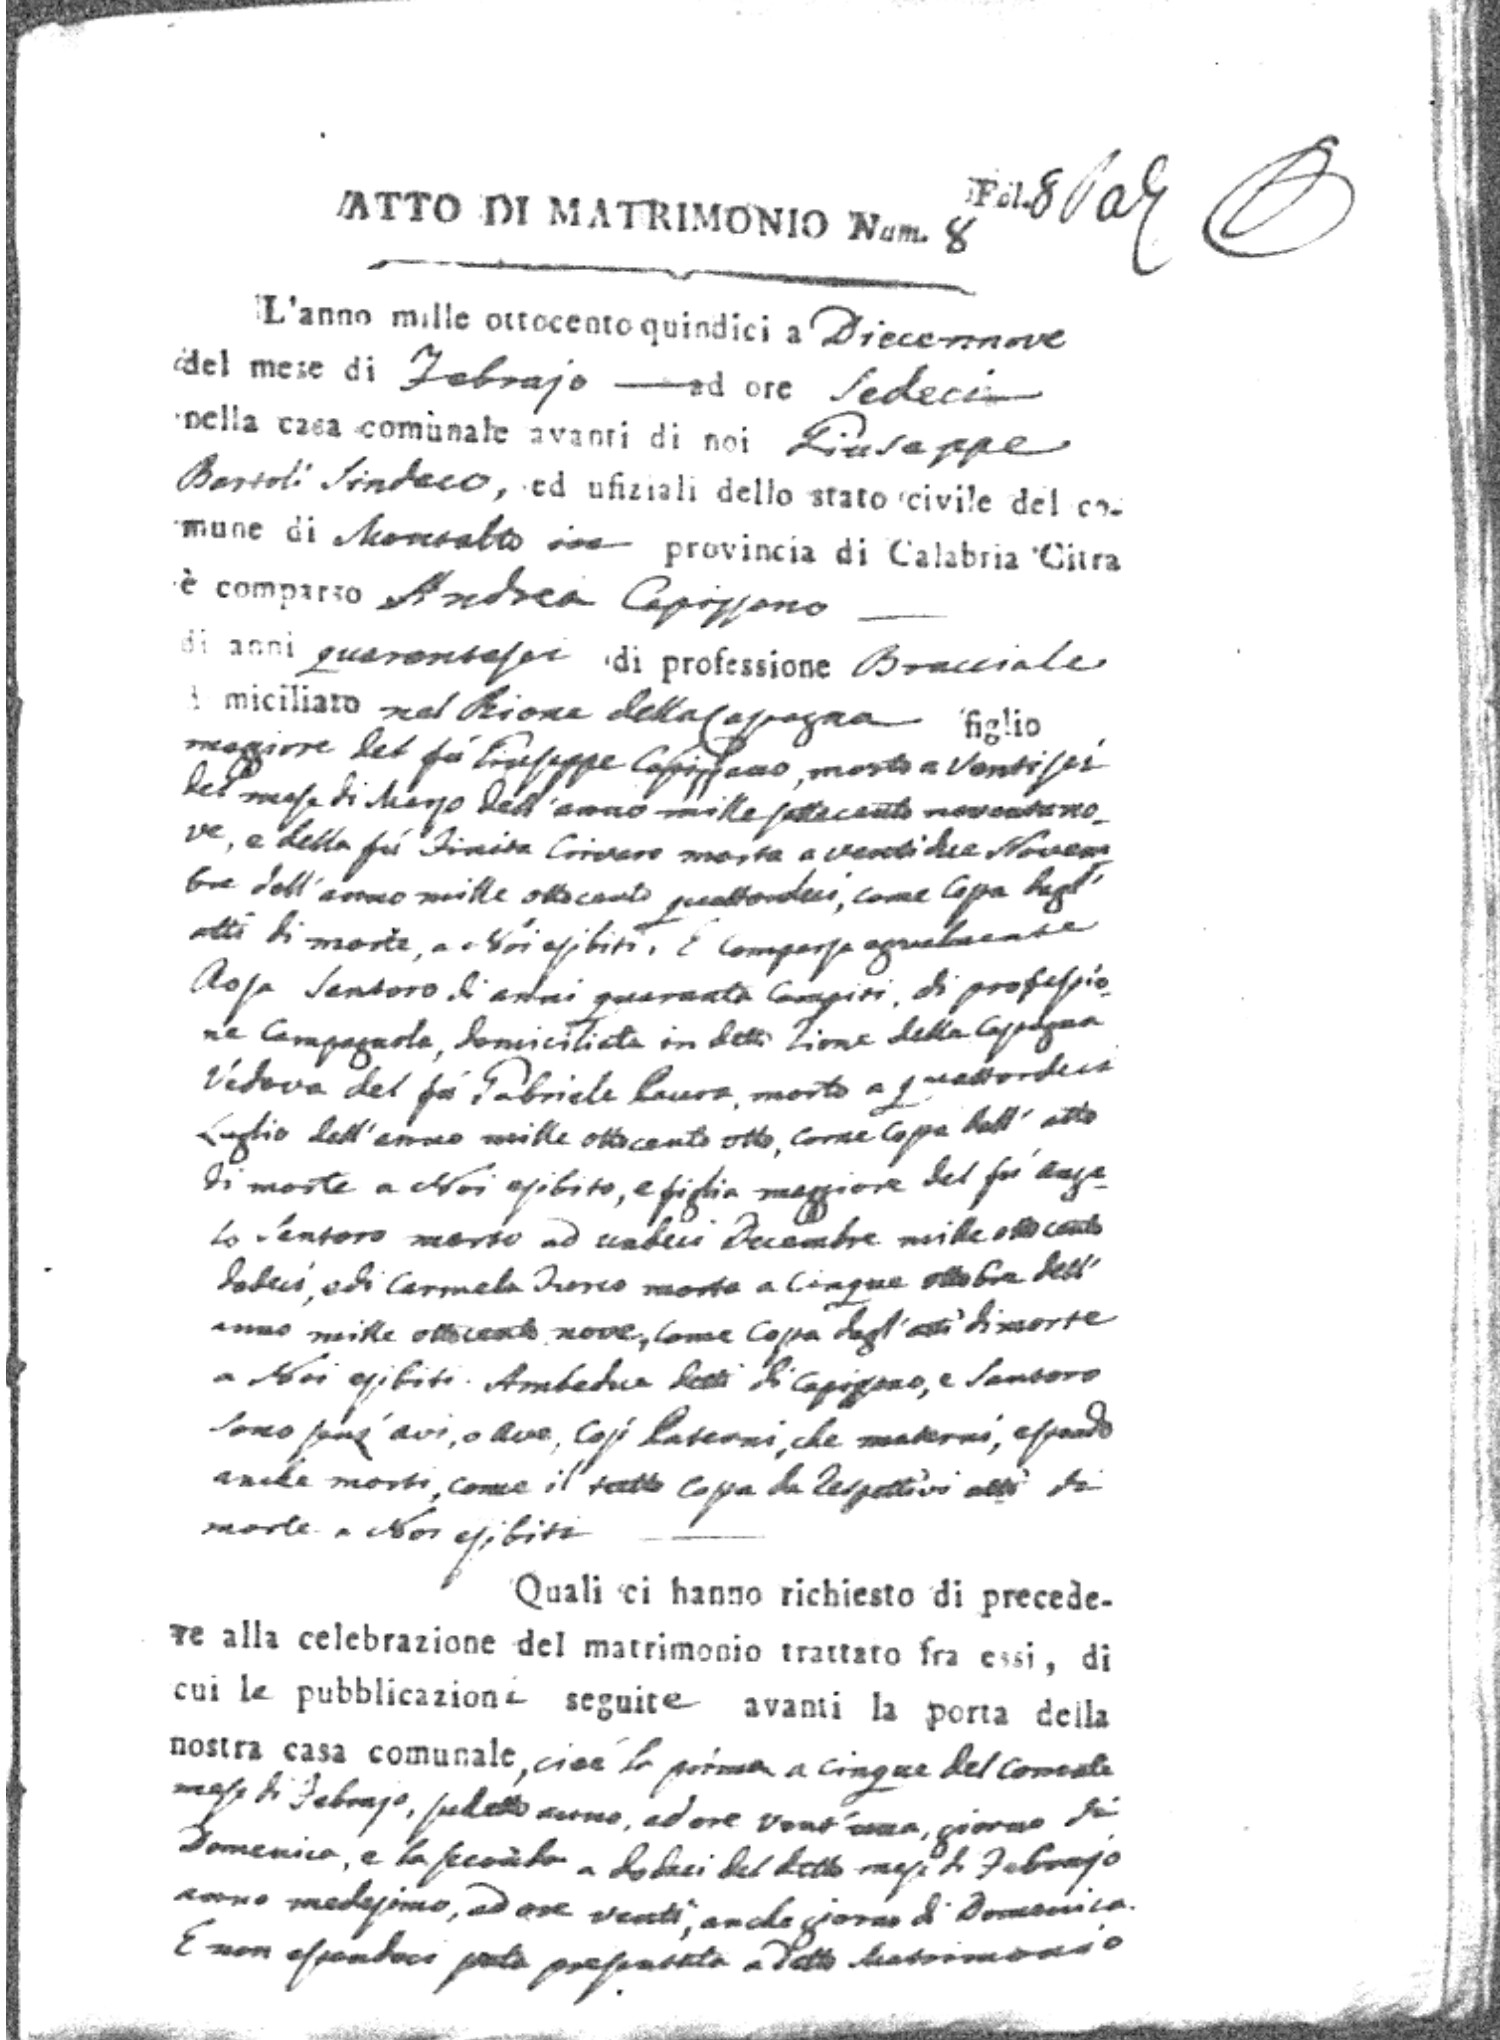 Fol. 8
ATTO DI MATRIMONIO Num. 8
L'anno mille ottocento quindici a Diecennove
del mese di Febrajo ad ore Sedeci
nella casa comunale avanti di noi Giuseppe
Bartoli Sindaco, ed ufiziali dello stato civile del co-
mune di Montalto in provincia di Calabria Citra
è comparso Andrea Capizzano
di anni quarantasei di professione Bracciale
miciliato nel Rione della figlio
maggiore del fú Giuseppe Capizzano, morto a Ventisei
del mese di Marzo dell'anno mille settecento novantano-
ve, e della fú Crivaro morta a ventidue Novem
bre dell'anno mille ottocento quattordeci, come costa dagl'
atti di morte, a Noi esibiti. È comparsa egualmente
Rosa Santoro di anni quaranta compiti, di professio-
ne Campagnola, domiciliata in detto Rione della
Vedova del fú Gabriele morto a quattordeci
Luglio dell'anno mille ottocento otto, come costa dall' atto
di morte a Noi esibito, e figlia maggiore del fú Ange-
lo Santoro morto ad undeci Decembre mille ottocento
dodeci, e di Carmela Turco morta a Cinque ottobre dell'
anno mille ottocento nove, come costa dagl' atti di morte
a Noi esibiti. Ambedue detti di Capizzano, e Santoro
sono senz' avi, o ave, così Paterni, che materni, essendo
anche morti, come il tutto costa da respettivi atti di
morte a Noi esibiti
Quali ci hanno richiesto di precede-
re alla celebrazione del matrimonio trattato fra essi, di
cui le pubblicazioni seguite avanti la porta della
nostra casa comunale, cioé la prima a cinque del corrente
mese di Febrajo, sudetto anno, ad ore vent'una, giorno di
Domenica, e la seconda a dodeci del detto mese di Febrajo
anno medesimo, ad ore venti, anche giorno di Domenica.
E non essendoci stata presentata a detto Matrimonio